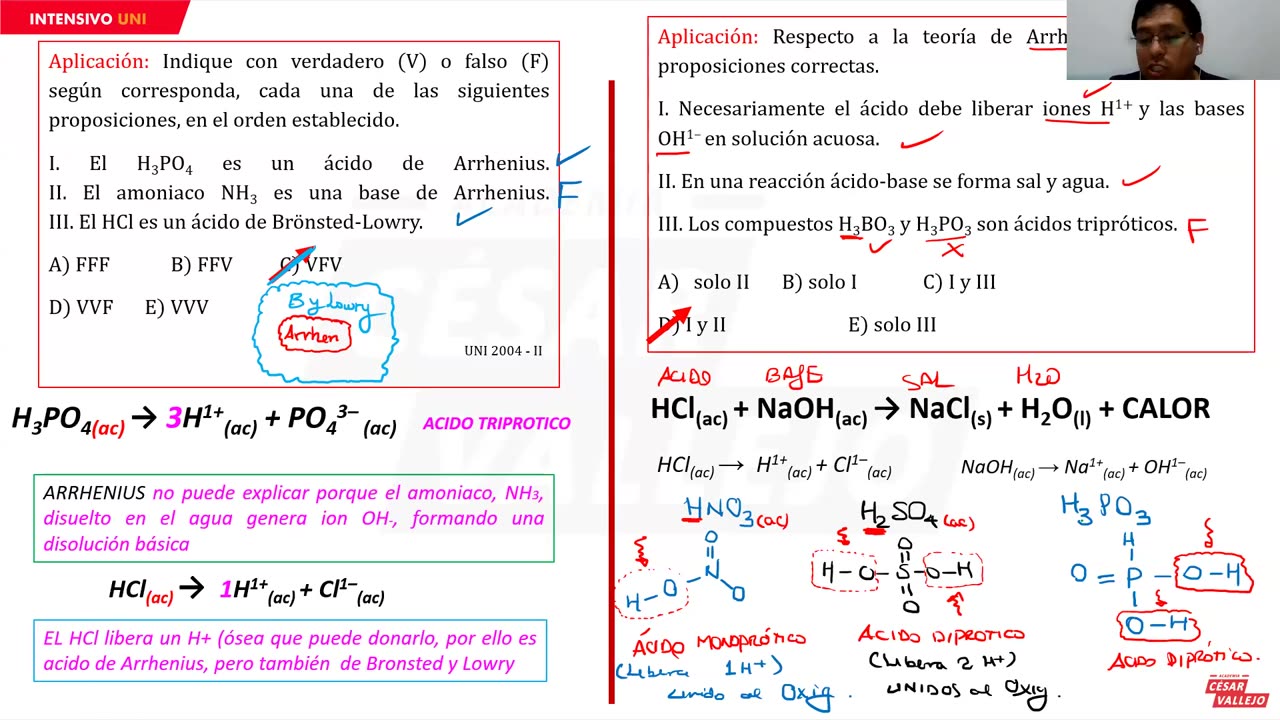 INTENSIVO UNI
Aplicación: Indique con verdadero (V) o falso (F)
según corresponda, cada una de las siguientes
proposiciones, en el orden establecido.
I. El H₃PO₄ es un ácido de Arrhenius.
II. El amoniaco NH₃ es una base de Arrhenius. F
III. El HCl es un ácido de Brönsted-Lowry.
A) FFF B) FFV C) VFV
D) VVF E) VVV
B y Lowry
Arrhen
UNI 2004 - II
H₃PO₄(ac) → 3H¹⁺(ac) + PO₄³⁻(ac) ACIDO TRIPROTICO
ARRHENIUS no puede explicar porque el amoniaco, NH₃,
disuelto en el agua genera ion OH-, formando una
disolución básica
HCl(ac) → 1H¹⁺(ac) + Cl¹⁻(ac)
EL HCl libera un H+ (ósea que puede donarlo, por ello es
acido de Arrhenius, pero también de Bronsted y Lowry
Aplicación: Respecto a la teoría de
proposiciones correctas.
I. Necesariamente el ácido debe liberar iones H¹⁺ y las bases
OH¹⁻ en solución acuosa.
II. En una reacción ácido-base se forma sal y agua.
III. Los compuestos H₃BO₃ y H₃PO₃ son ácidos tripróticos. F
A) solo II B) solo I C) I y III
D) I y II E) solo III
ACIDO BASE SAL H₂O
HCl(ac) + NaOH(ac) → NaCl(s) + H₂O(l) + CALOR
HCl(ac) → H¹⁺(ac) + Cl¹⁻(ac) NaOH(ac) → Na¹⁺(ac) + OH¹⁻(ac)
HNO₃(ac)
O
H-O N O
ÁCIDO MONOPRÓTICO
(Libera 1H+)
unido al Oxig.
H₂SO₄(ac)
O
H-O-S-O-H
O
ACIDO DIPROTICO
(Libera 2 H+)
UNIDOS al Oxig.
H₃PO₃
H
O=P-O-H
O-H
ACIDO DIPRÓTICO.
ACADEMIA
CÉSAR
VALLEJO